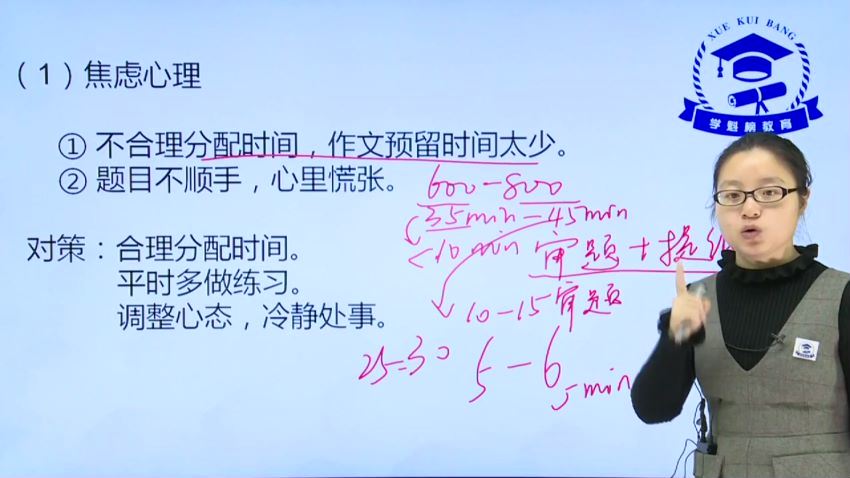 XUE KUI BANG
学魁榜教育
（1）焦虑心理
① 不合理分配时间，作文预留时间太少。
② 题目不顺手，心里慌张。
600-800
35min-45min
<10min
审题+提
对策：合理分配时间。
平时多做练习。
调整心态，冷静处事。
10-15审题
25-30
5-6
5min